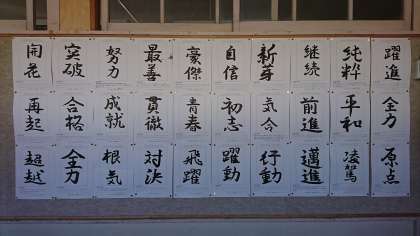 開花 突破 努力 最善 豪傑 自信 新芽 継続 純粋 躍進
再起 合格 成就 貫徹 青春 初志 気合 前進 平和 全力
超越 全力 根気 対決 飛躍 躍動 行動 邁進 凌駕 原点